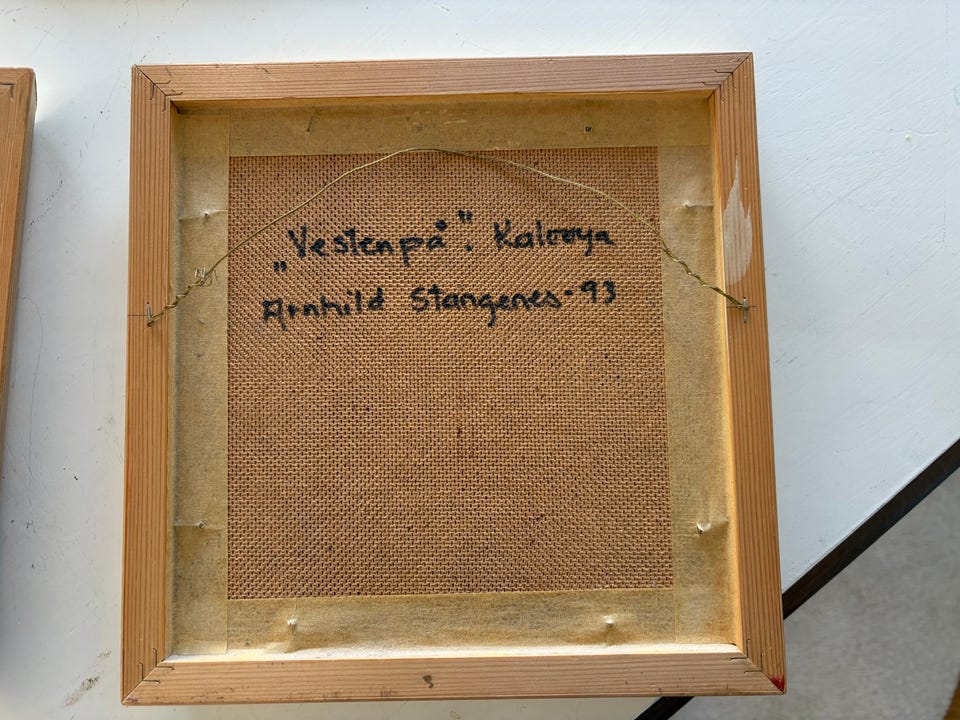 „Vestenpå". Kalvøya
Arnhild Stangenes - 93